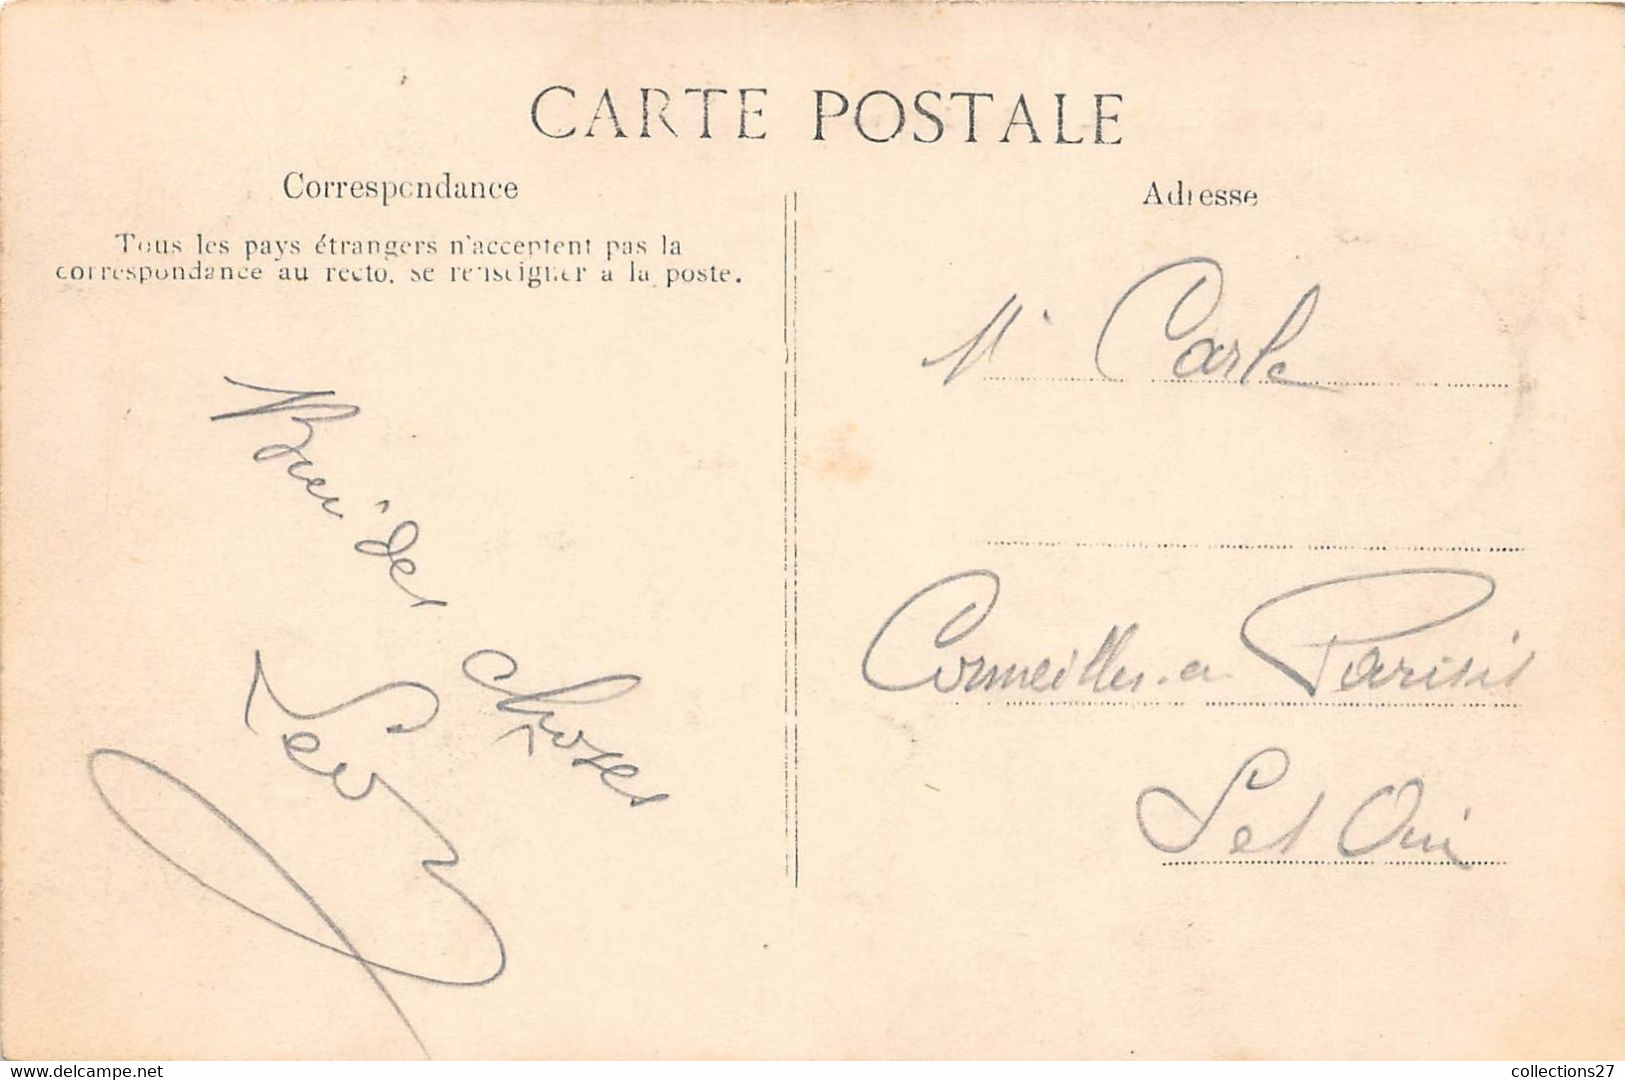 CARTE POSTALE
Correspondance
Tous les pays étrangers n'acceptent pas la
correspondance au recto, se renseigner à la poste.
Bien des choses
Adresse
Mr Carle
Cormeilles-en Parisis
Set Oise
collections27